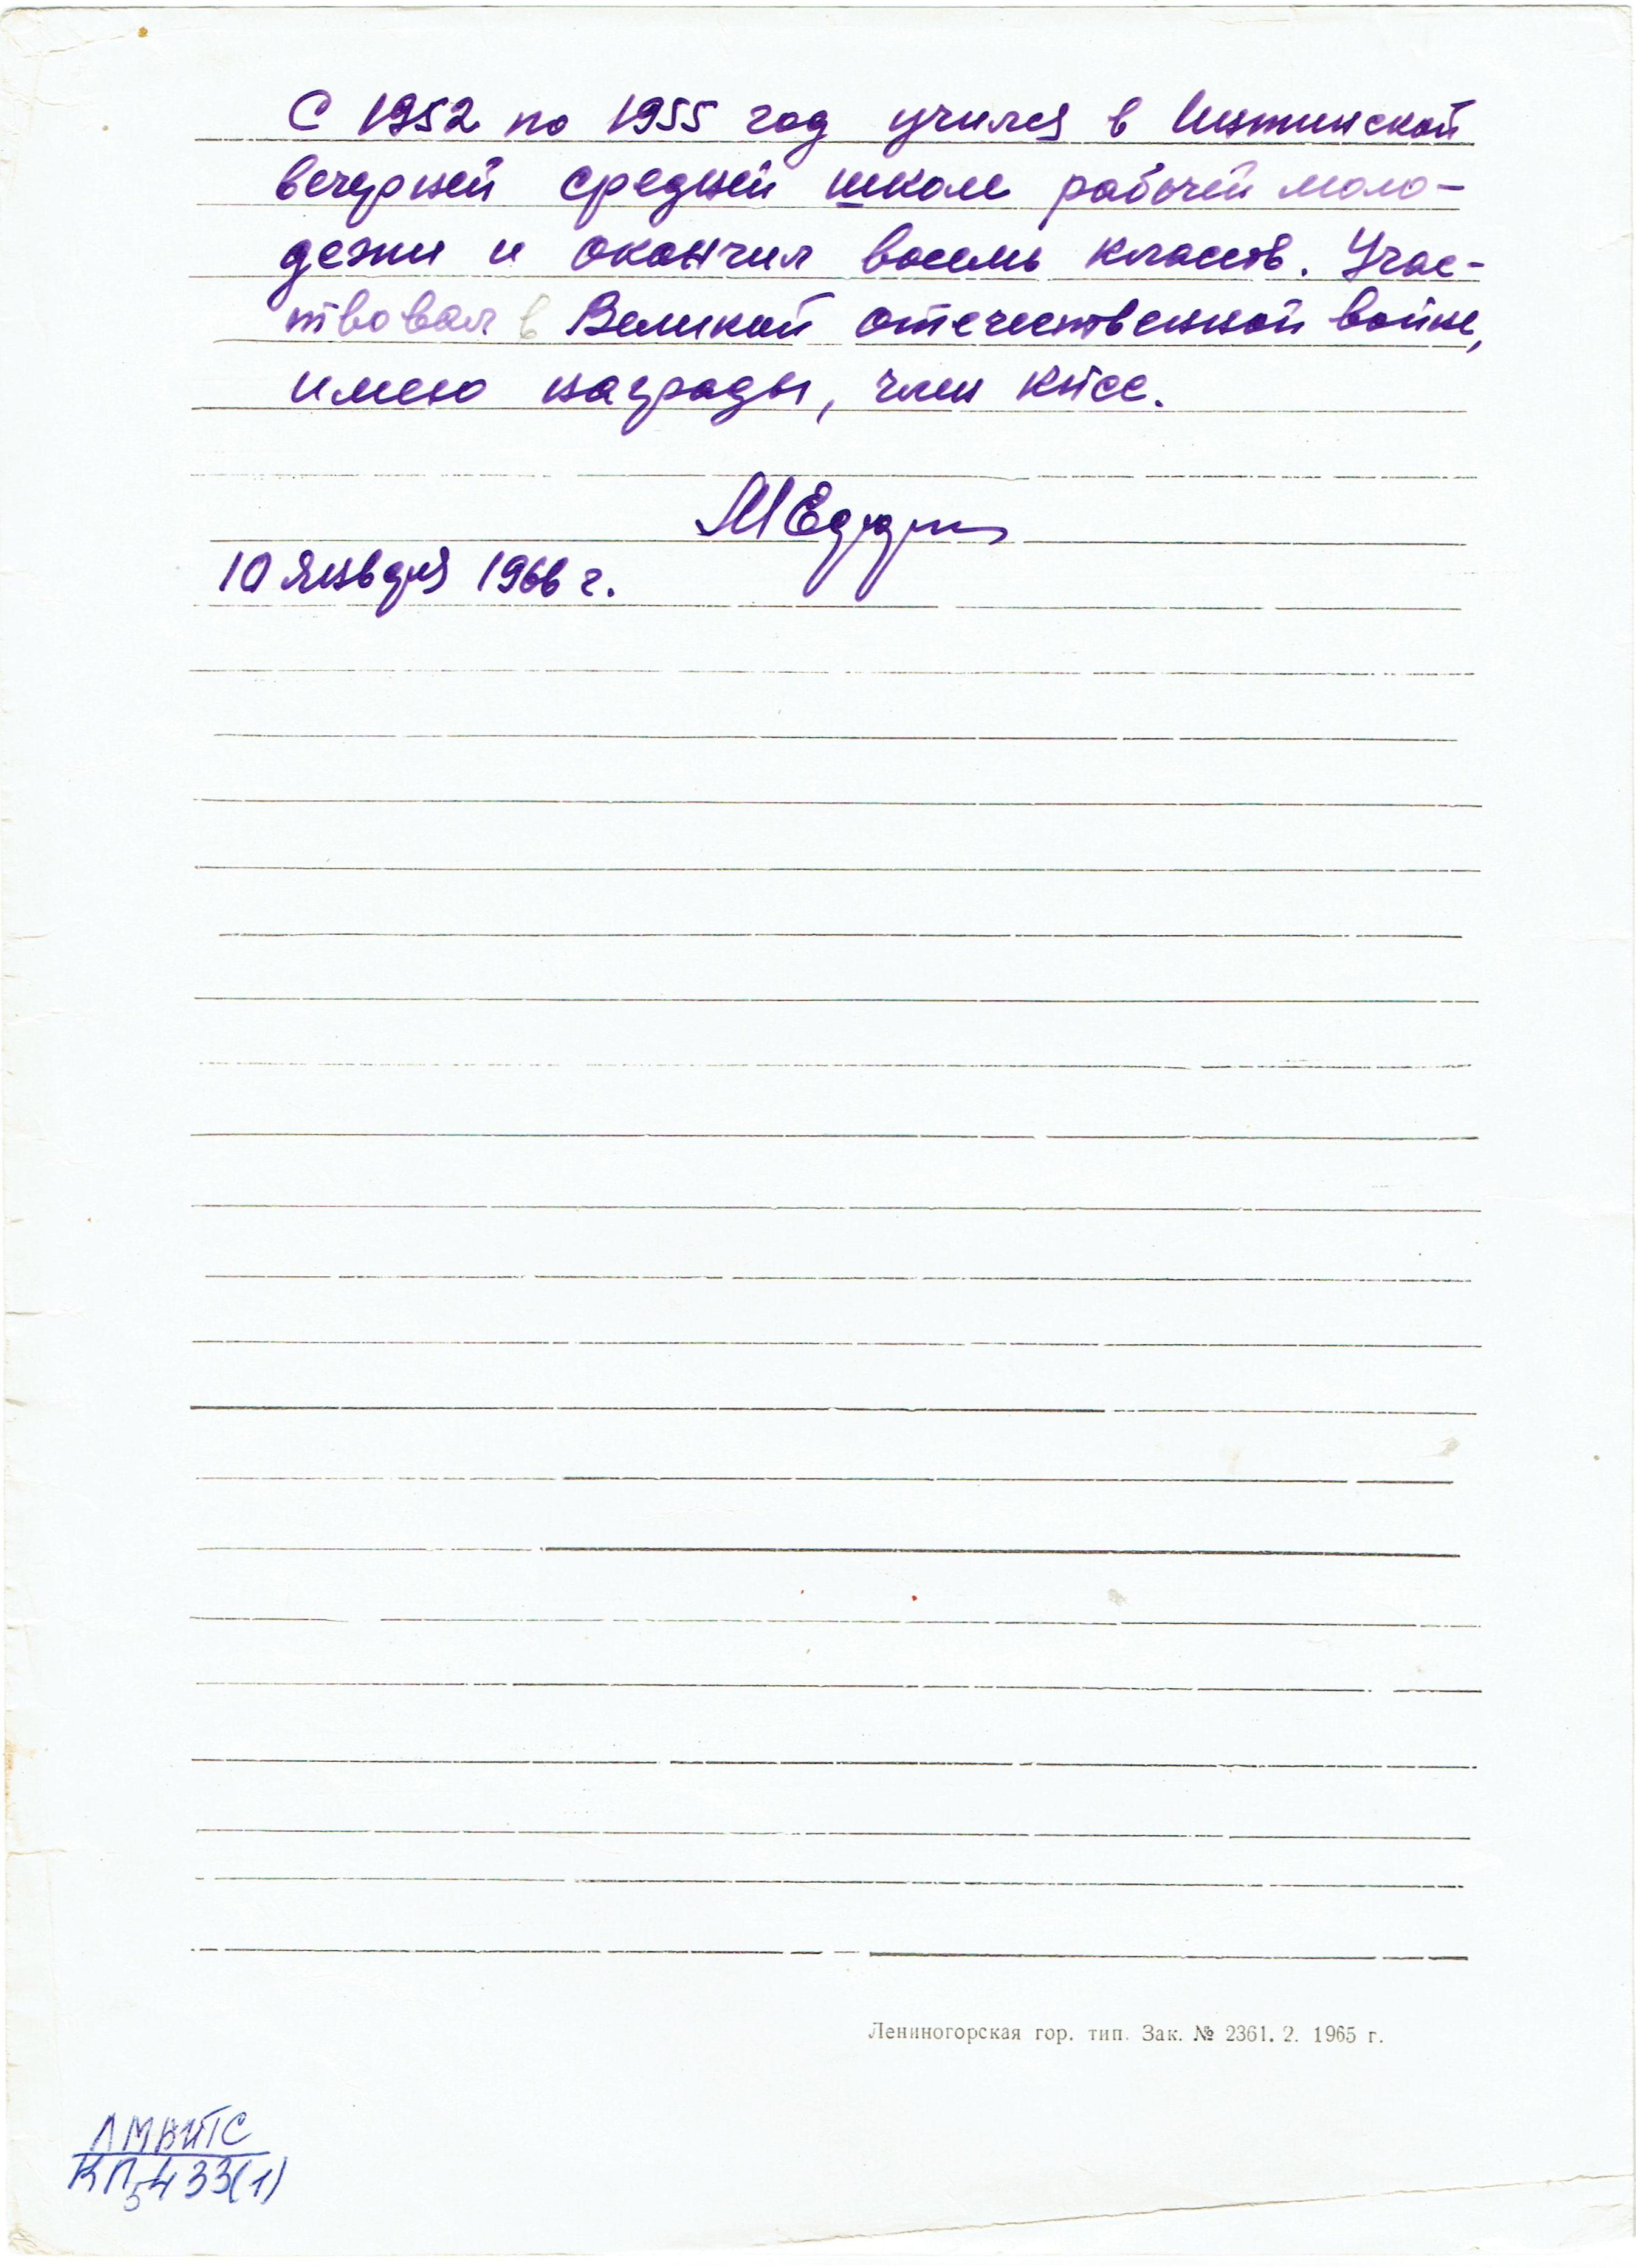 С 1952 по 1955 год учился в Интинской
вечерней средней школе рабочей моло-
дежи и окончил восемь классов. Учас-
твовал в Великой отечественной войне,
имею награды, член КПСС.
10 января 1966 г.
Лениногорская гор. тип. Зак. № 2361. 2. 1965 г.
КП 5433(1)